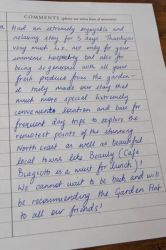 COMMENTS (please use extra lines if necessary)
Had an extremely enjoyable and
relaxing stay for 5 days. Thankyou
very much Liz, not only for your
immense hospitality but also for
being so generous with all your
fresh produce from the garden -
it truly made our stay that
much more special. Extremely
convenient location and base for
frequent day trips to explore the
remotest points of the stunning
North east as well as beautiful
local towns like Beauly (Cafe
Biagiotti is a must for lunch)!
We cannot wait to be back and will
be recommending the Garden Flat
to all our friends!